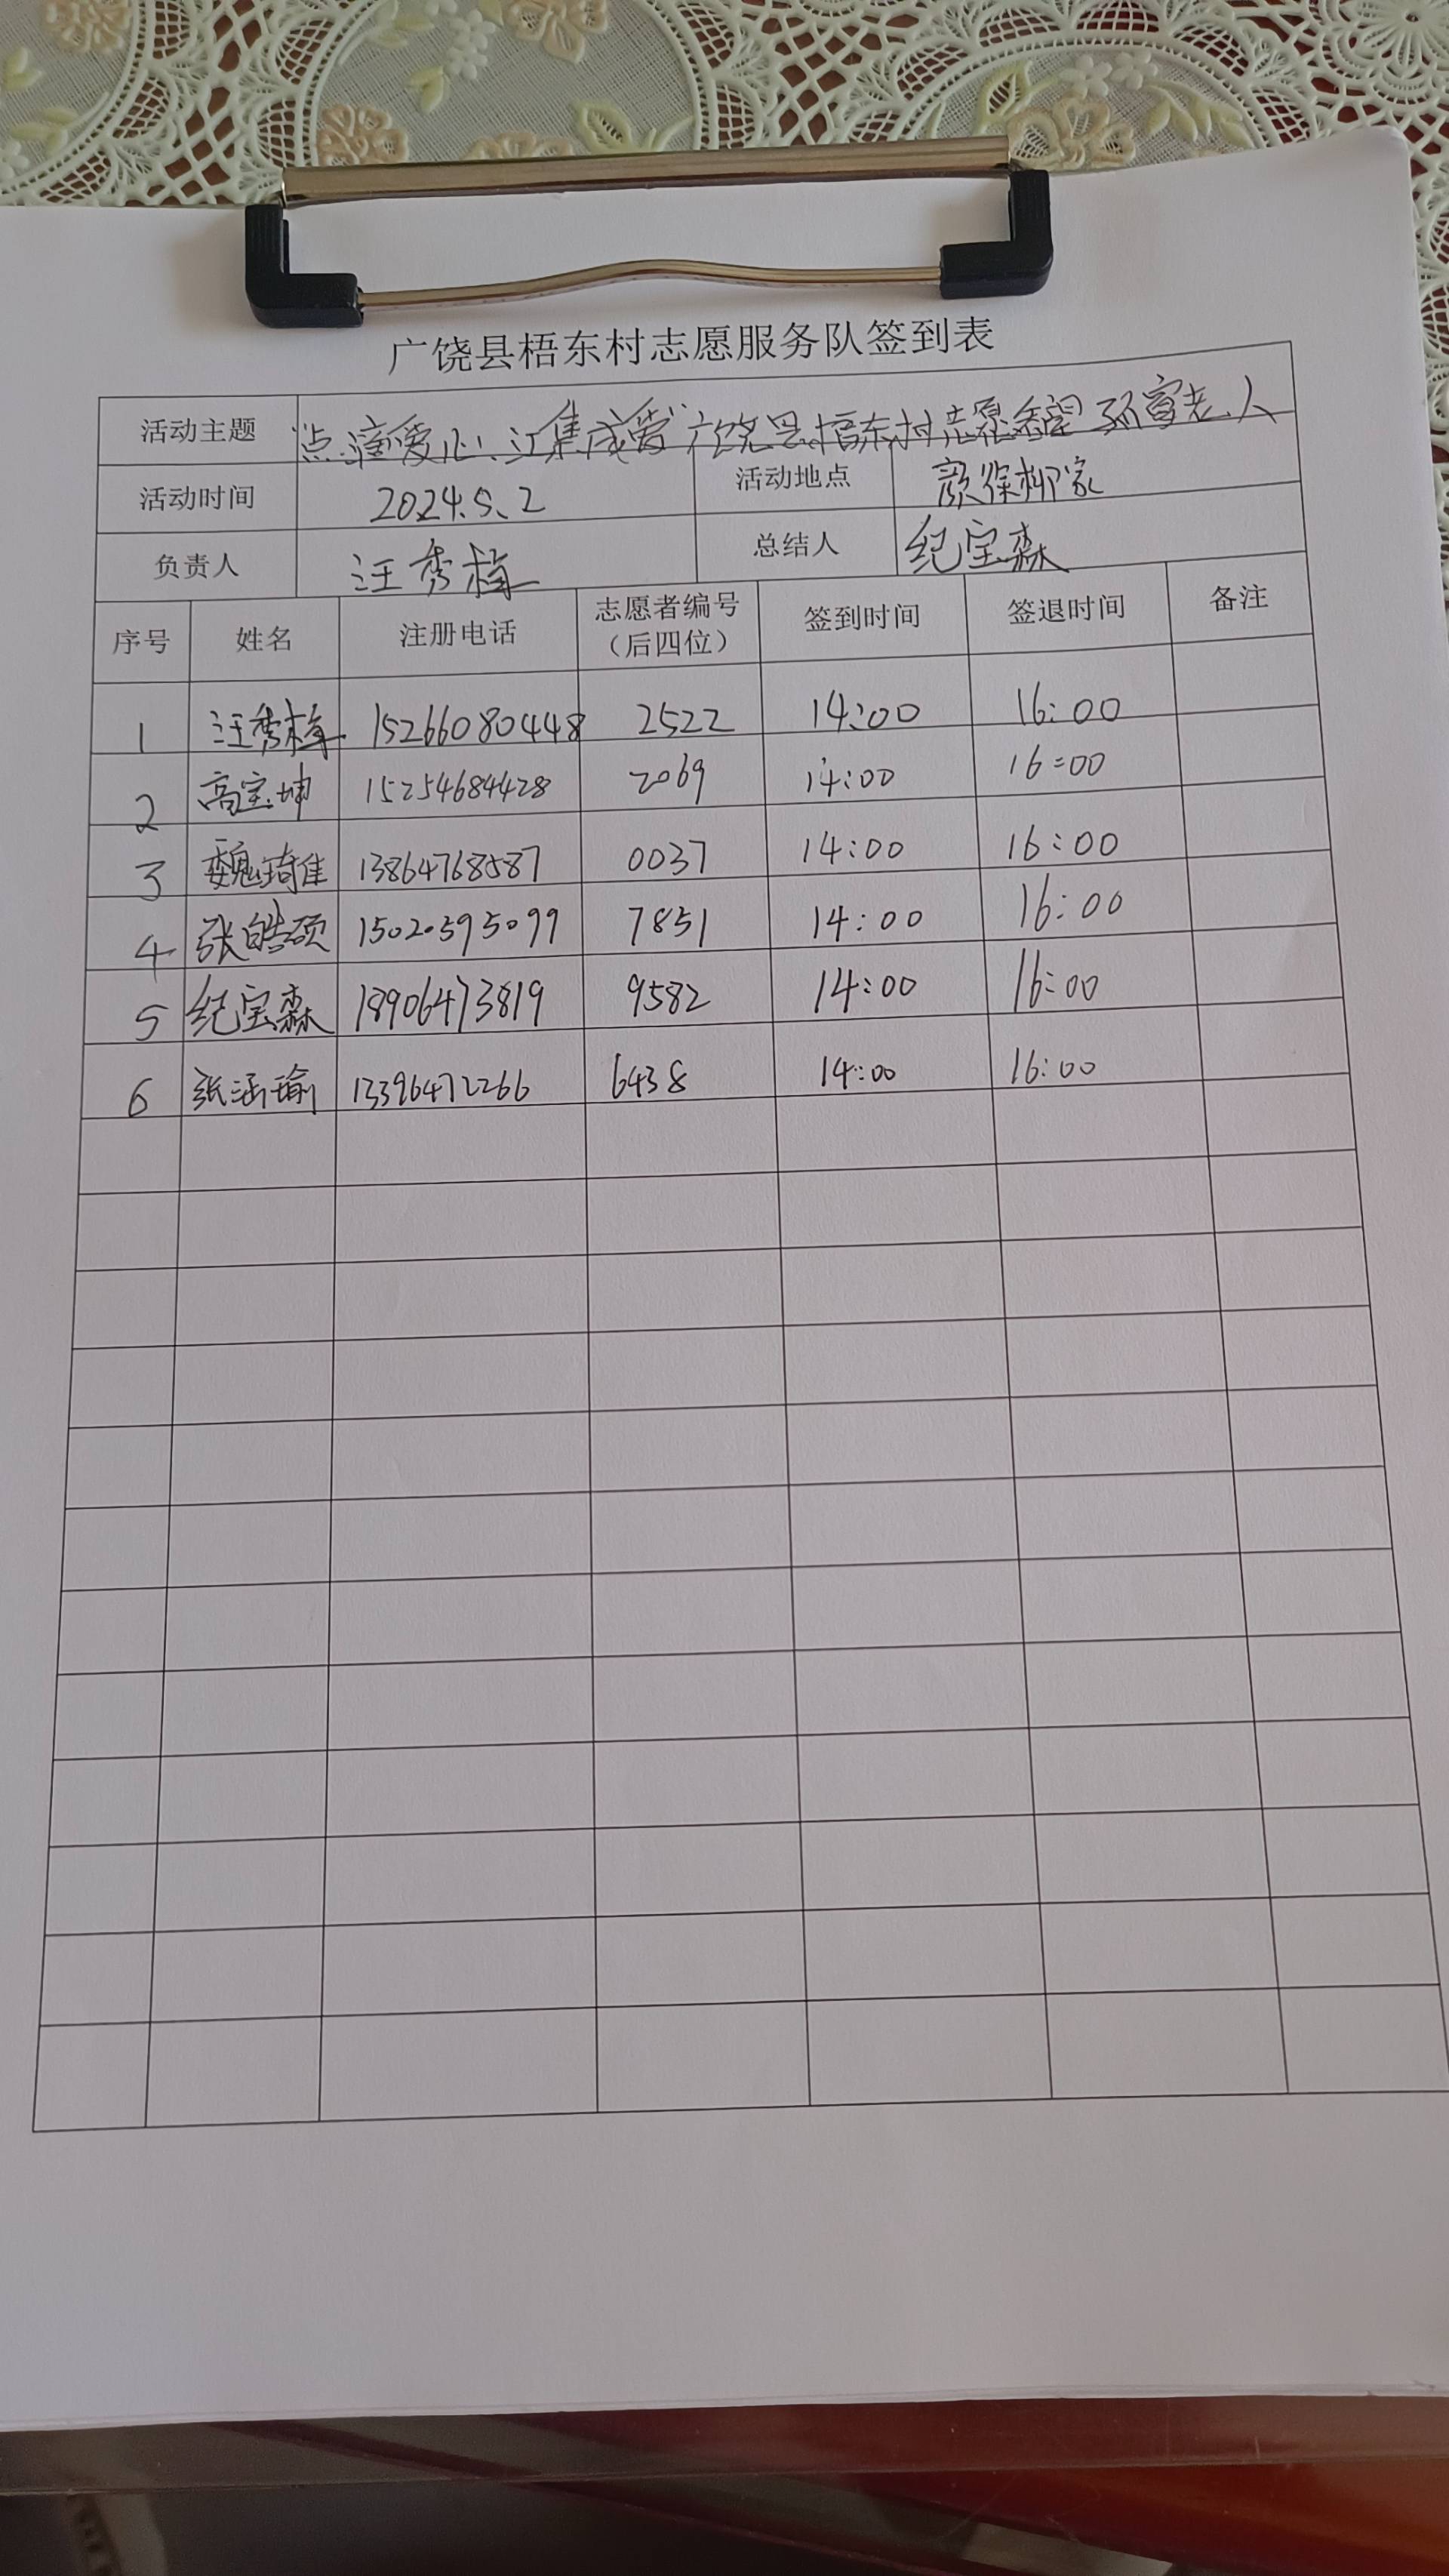 广饶县梧东村志愿服务队签到表
活动主题 “点滴爱心、汇集成爱”广饶县梧东村志愿希望孤寡老人
活动时间 2024.5.2 活动地点 颜徐柳家
负责人 汪秀梅 总结人 纪宝森
序号 姓名 注册电话 志愿者编号（后四位） 签到时间 签退时间 备注
1 汪秀梅 15266080448 2522 14:00 16:00
2 高宝坤 15254684428 2069 14:00 16:00
3 魏琦佳 13864768587 0037 14:00 16:00
4 张皓硕 15020595099 7851 14:00 16:00
5 纪宝森 18906473819 9582 14:00 16:00
6 张涵瑜 13396472266 6438 14:00 16:00